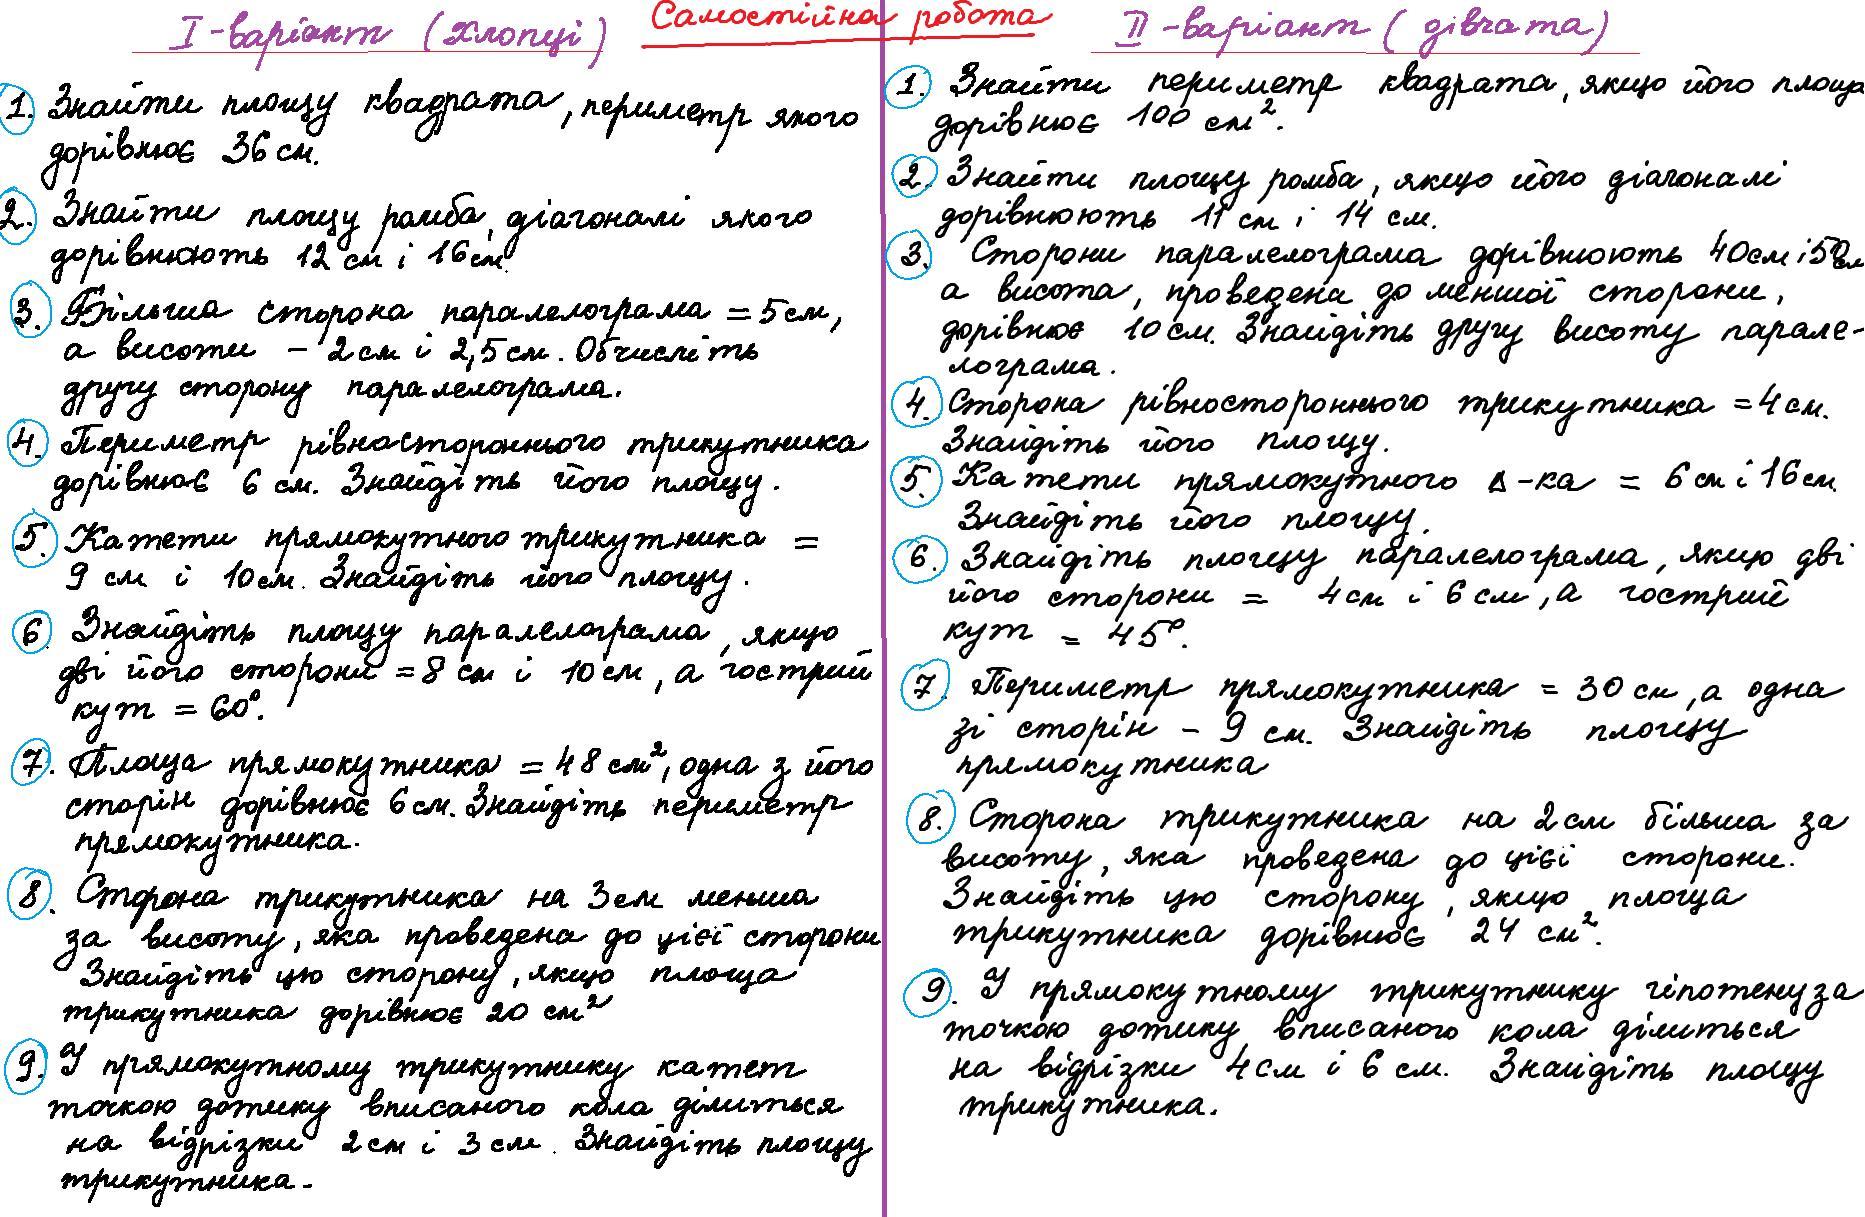 Самостійна робота
I-варіант (хлопці)
1. Знайти площу квадрата, периметр якого
дорівнює 36 см.
2. Знайти площу ромба, діагоналі якого
дорівнюють 12 см і 16 см.
3. Більша сторона паралелограма = 5 см,
а висоти - 2 см і 2,5 см. Обчисліть
другу сторону паралелограма.
4. Периметр рівностороннього трикутника
дорівнює 6 см. Знайдіть його площу.
5. Катети прямокутного трикутника =
9 см і 10 см. Знайдіть його площу.
6 Знайдіть площу паралелограма, якщо
дві його сторони = 8 см і 10 см, а гострий
кут = 60°.
7. Площа прямокутника = 48 см², одна з його
сторін дорівнює 6 см. Знайдіть периметр
прямокутника.
8. Сторона трикутника на 3 см менша
за висоту, яка проведена до цієї сторони
Знайдіть цю сторону, якщо площа
трикутника дорівнює 20 см²
9. У прямокутному трикутнику катет
точкою дотику вписаного кола ділиться
на відрізки 2 см і 3 см. Знайдіть площу
трикутника.
II-варіант (дівчата)
1. Знайти периметр квадрата, якщо його площа
дорівнює 100 см².
2. Знайти площу ромба, якщо його діагоналі
дорівнюють 11 см і 14 см.
3. Сторони паралелограма дорівнюють 40 см і 50 см
а висота, проведена до меншої сторони,
дорівнює 10 см. Знайдіть другу висоту парале-
лограма.
4. Сторона рівностороннього трикутника = 4 см.
Знайдіть його площу.
5. Катети прямокутного Δ-ка = 6 см і 16 см.
Знайдіть його площу.
6. Знайдіть площу паралелограма, якщо дві
його сторони = 4 см і 6 см, а гострий
кут = 45°.
7. Периметр прямокутника = 30 см, а одна
зі сторін - 9 см. Знайдіть площу
прямокутника
8. Сторона трикутника на 2 см більша за
висоту, яка проведена до цієї сторони.
Знайдіть цю сторону, якщо площа
трикутника дорівнює 24 см².
9. У прямокутному трикутнику гіпотенуза
точкою дотику вписаного кола ділиться
на відрізки 4 см і 6 см. Знайдіть площу
трикутника.